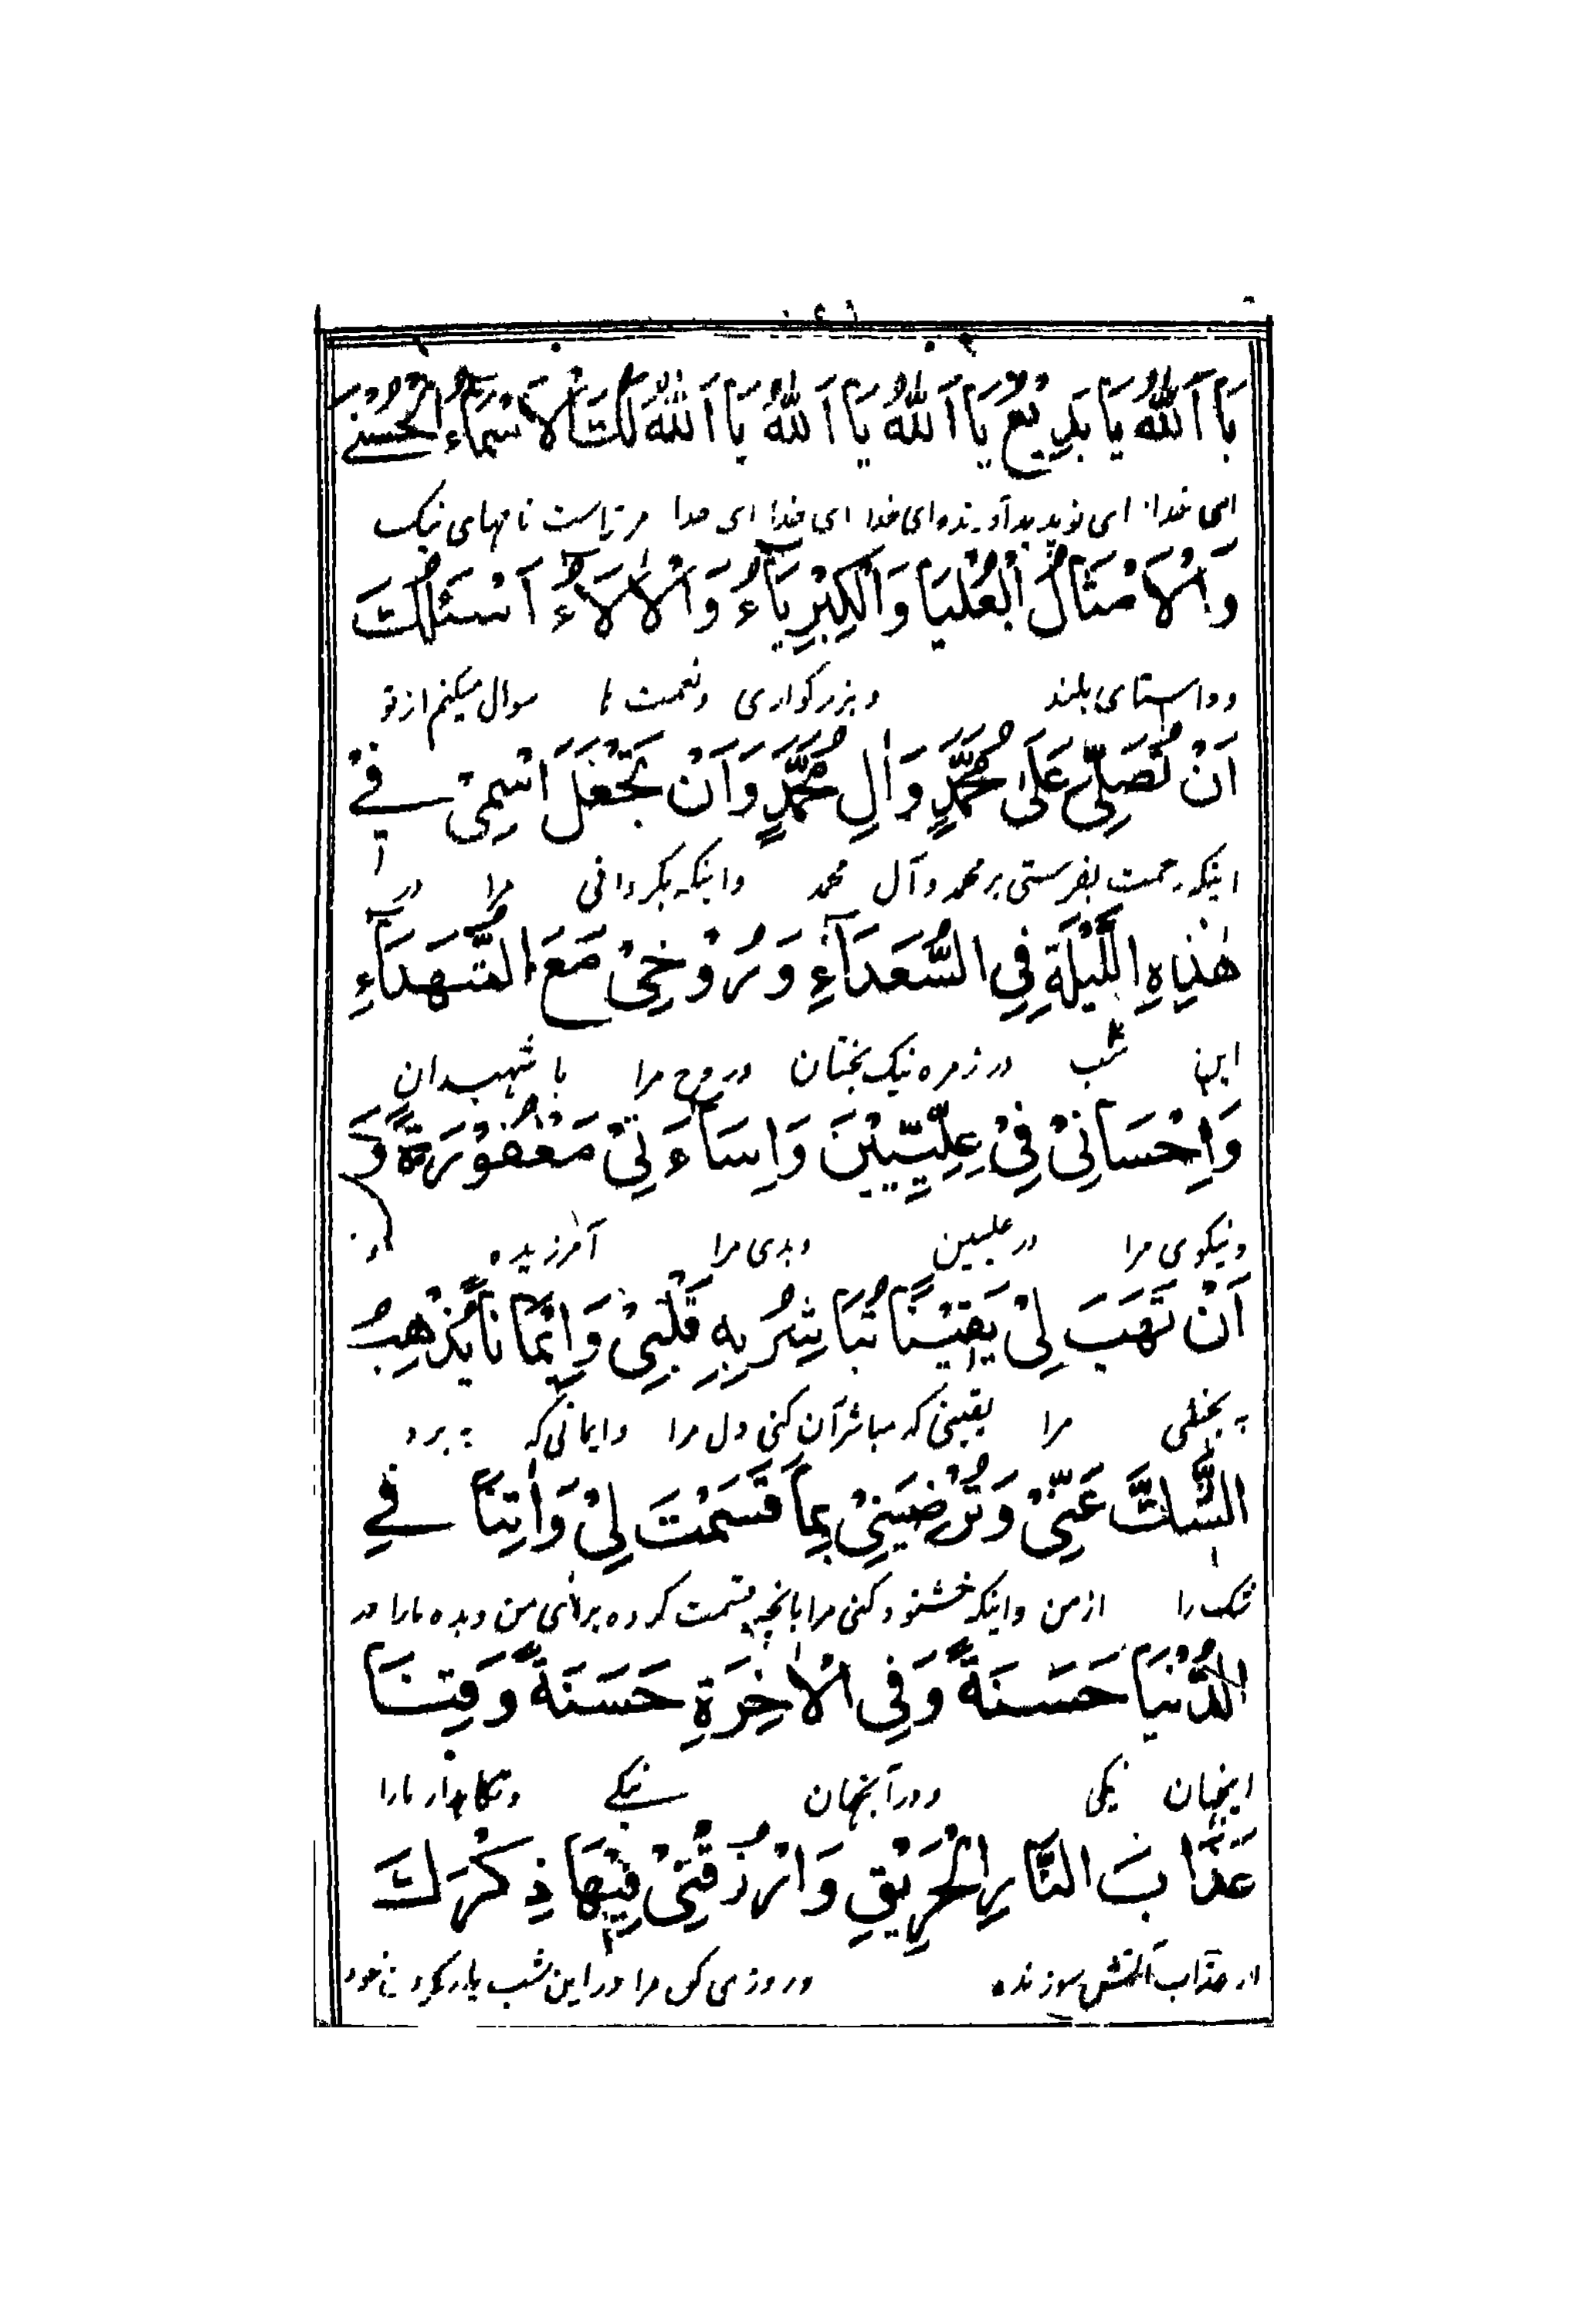 يَا اَللّٰهُ يَا بَدِيْعُ يَا اَللّٰهُ يَا اَللّٰهُ يَا اَللّٰهُ لَكَ الْاَسْمَاءُ الْحُسْنٰى
ای خدا ای نو پدید آورنده ای خدا ای خدا ای خدا مر تراست نامهای نیک
وَالْاَمْثَالُ الْعُلْيَا وَالْكِبْرِيَآءُ وَالْاٰلَآءُ اَسْئَلُكَ
و داستانهای بلند و بزرگواری و نعمت ها سوال میکنم از تو
اَنْ تُصَلِّيَ عَلٰى مُحَمَّدٍ وَاٰلِ مُحَمَّدٍ وَاَنْ تَجْعَلَ اسْمِيْ فِيْ
اینکه رحمت بفرستی بر محمد و آل محمد و اینکه بگردانی مرا در
هٰذِهِ اللَّيْلَةِ فِي السُّعَدَآءِ وَرُوْحِيْ مَعَ الشُّهَدَآءِ
این شب در زمره نیک بختان و روح مرا با شهیدان
وَاِحْسَانِيْ فِيْ عِلِّيِّيْنَ وَاِسَآءَتِيْ مَغْفُوْرَةً وَ
و نیکوی مرا در علیین و بدی مرا آمرزیده
اَنْ تَهَبَ لِيْ يَقِيْنًا تُبَاشِرُ بِهِ قَلْبِيْ وَاِيْمَانًا يُذْهِبُ
به بخشی مرا یقینی که مباشر آن کنی دل مرا و ایمانی که به برد
الشَّكَّ عَنِّيْ وَتُرْضِيَنِيْ بِمَا قَسَمْتَ لِيْ وَاٰتِنَا فِي
شک را از من و اینکه خشنود کنی مرا بانچه قسمت کرده برای من و بده مارا در
الدُّنْيَا حَسَنَةً وَفِي الْاٰخِرَةِ حَسَنَةً وَقِنَا
اینجهان نیکی و در آنجهان نیکی و نگاهدار مارا
عَذَابَ النَّارِ الْحَرِيْقِ وَارْزُقْنِيْ فِيْهَا ذِكْرَكَ
از عذاب آتش سوزنده و روزی کن مرا در این شب یاد کردن خود